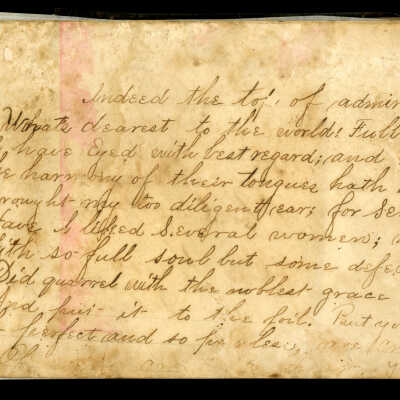 Indeed the top of admir
What's dearest to the world! Full
I have Eyed with best regard; and
harmony of their tongues hath
rought my too diligent ear: for Se
have I liked Several women;
ith so full soul but some defe
Did quarrel with the noblest grace
put it to the foil. But yo
perfect and so pe rless, are